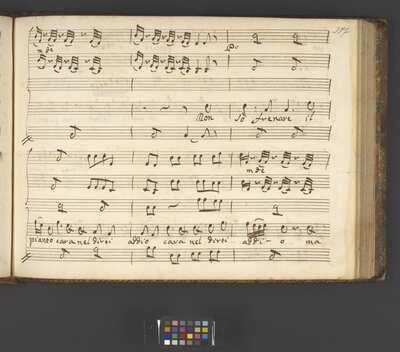 mdi
po:
Non so frenare il
mdi
pianto cara nel dirti addio cara nel dirti addi-o ma